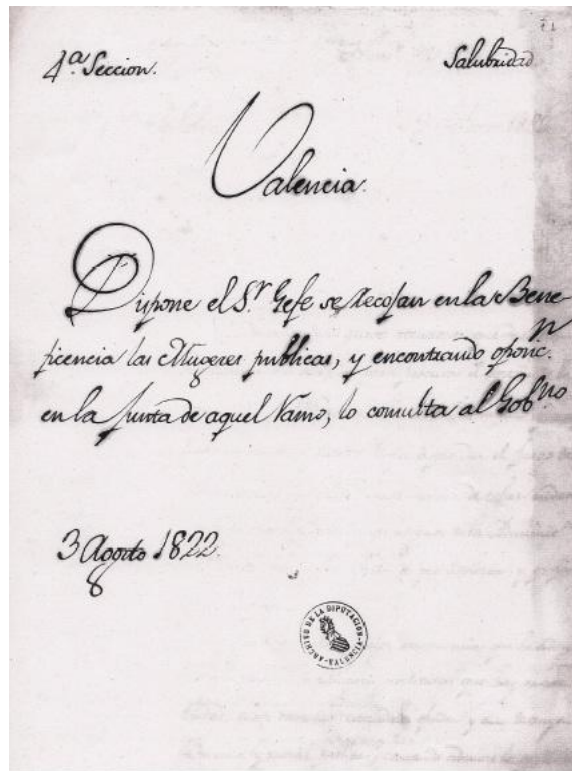 4.ª Seccion.
Salubridad
Valencia.
Dispone el S.r Gefe se recojan en la Bene
ficencia las Mugeres publicas, y encontrando oposic.n
en la Junta de aquel Ramo, lo consulta al Gob.no
3 Agosto 1822.
ARCHIVO DE LA DIPUTACION
VALENCIA